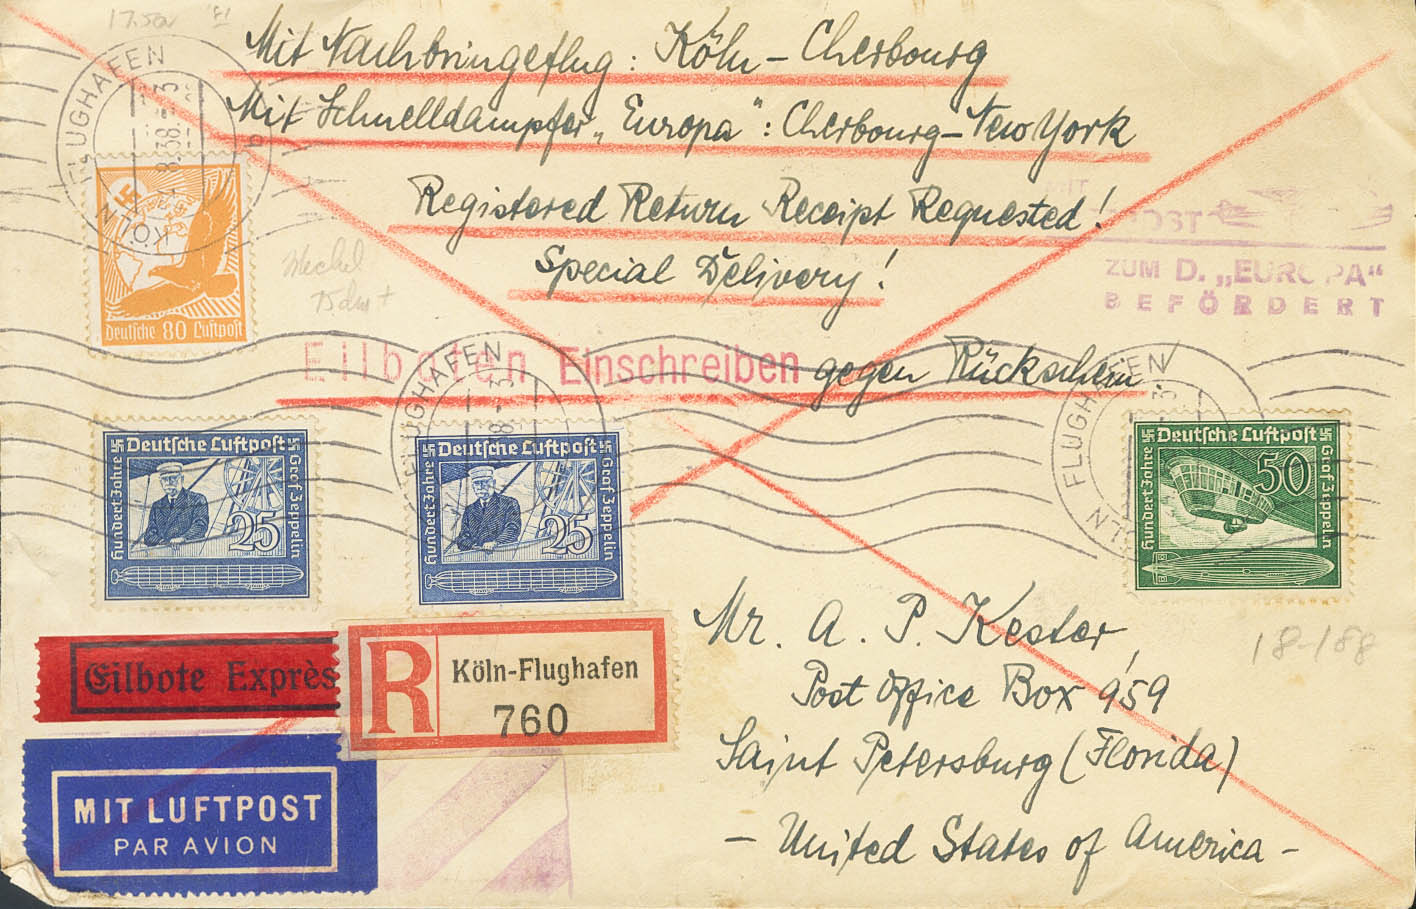 17.50
Mit Nachbringeflug: Köln - Cherbourg
Mit Schnelldampfer „Europa“: Cherbourg - New York
Registered Return Receipt Requested!
Special Delivery!
MIT
POST
ZUM D. „EUROPA“
BEFÖRDERT
FLUGHAFEN
KÖLN
b
Deutsche 80 Luftpost
Eilboten Einschreiben gegen Rückschein
FLUGHAFEN
FLUGHAFEN
KÖLN
Deutsche Luftpost
Hundert Jahre
Graf Zeppelin
25
Deutsche Luftpost
Hundert Jahre
Graf Zeppelin
25
Deutsche Luftpost
Hundert Jahre
Graf Zeppelin
50
Mr. A. P. Kester,
Post Office Box 959
Saint Petersburg (Florida)
- United States of America -
18-188
Eilbote Exprès
R
Köln-Flughafen
760
MIT LUFTPOST
PAR AVION